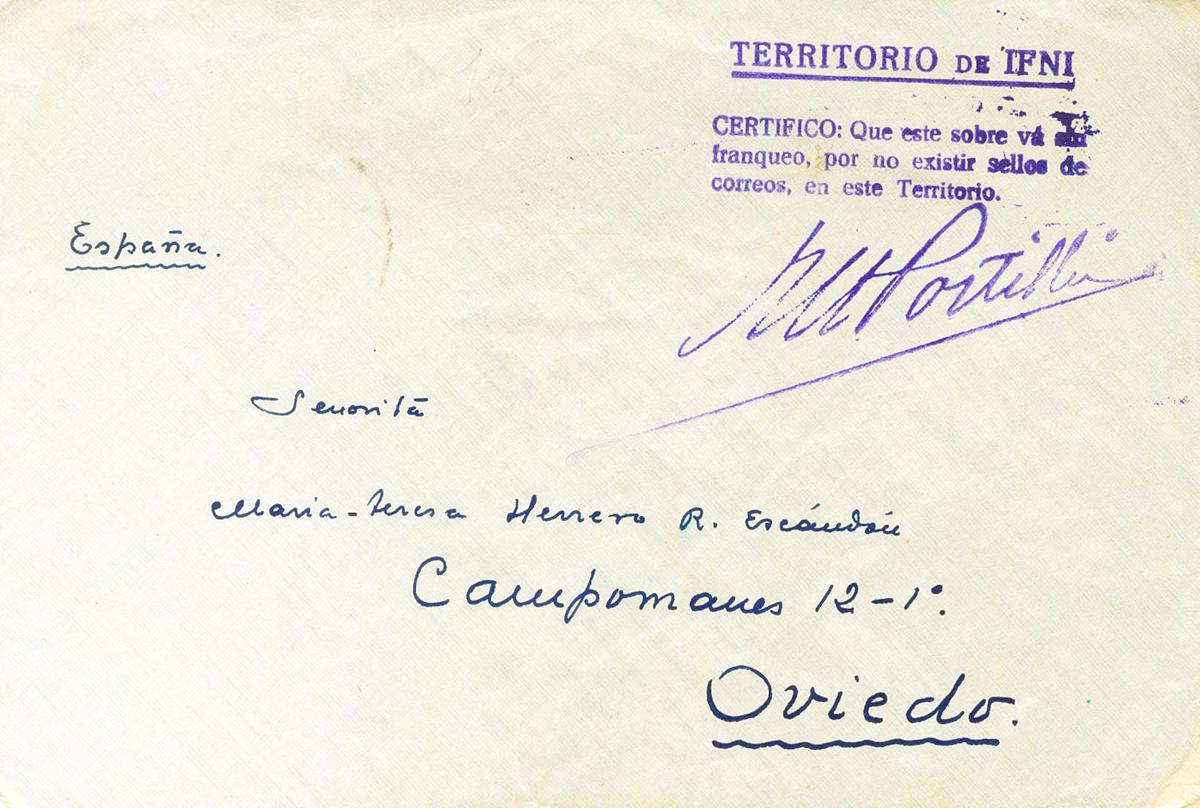 TERRITORIO DE IFNI
CERTIFICO: Que este sobre vá sin
franqueo, por no existir sellos de
correos, en este Territorio.
España.
Señorita
Maria-teresa Herrero R. Escándón
Campomanes 12-1º.
Oviedo.